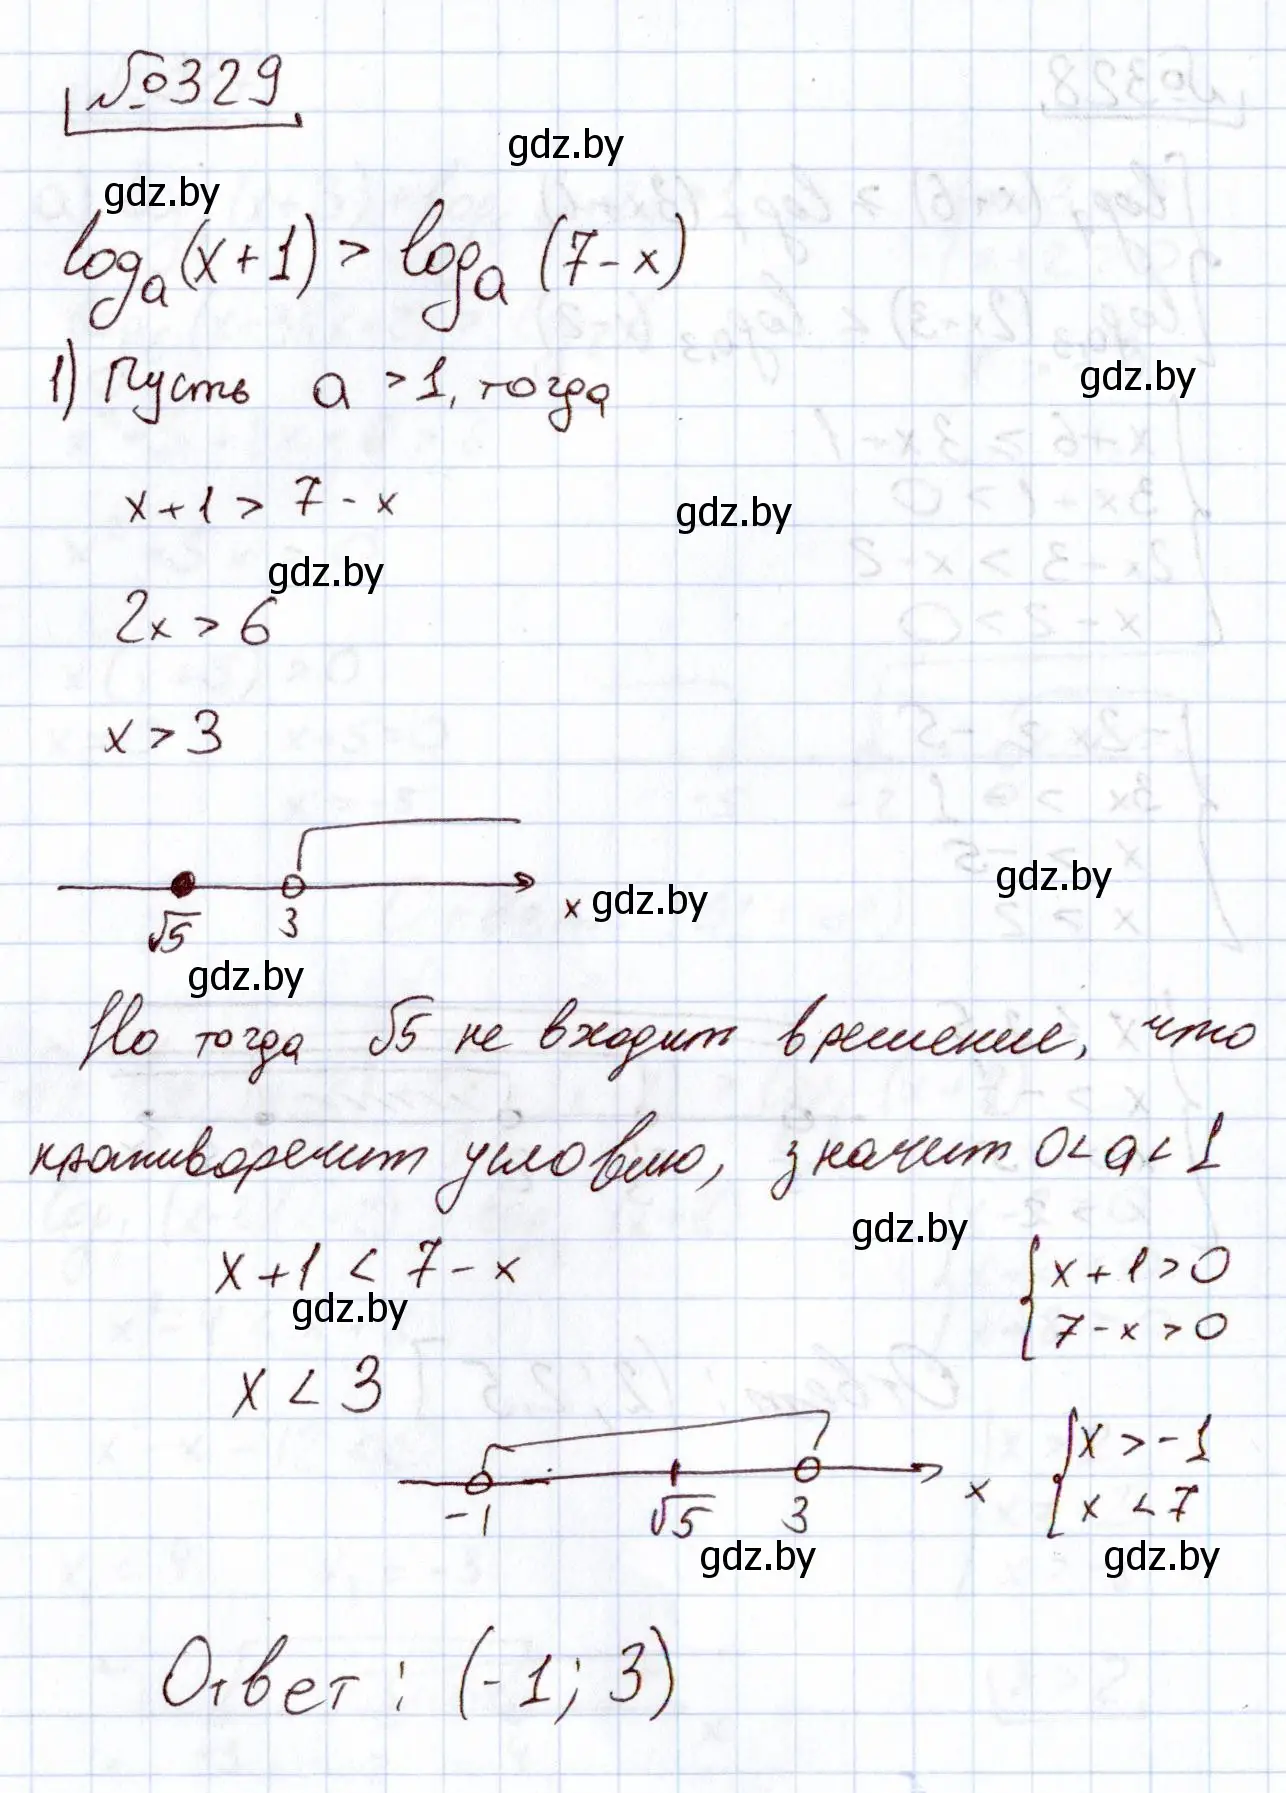 №329
gdz.by
gdz.by
logₐ(x+1) > logₐ(7-x)
1) Пусть a > 1, тогда
gdz.by
x+1 > 7-x
gdz.by
gdz.by
2x > 6
x > 3
gdz.by
√5 3 x gdz.by
gdz.by
Но тогда √5 не входит в решение, что
противоречит условию, значит 0<a<1
gdz.by
x+1 < 7-x
{ x+1>0
gdz.by
7-x>0
x < 3
{ x > -1
-1 √5 3 x
x < 7
gdz.by
gdz.by
Ответ: (-1; 3)